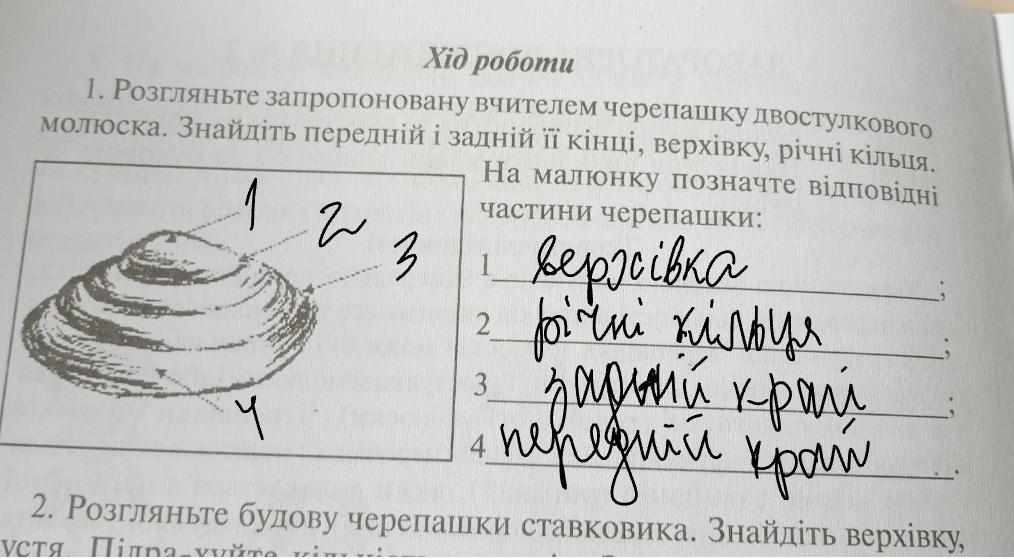 Хід роботи
1. Розгляньте запропоновану вчителем черепашку двостулкового
молюска. Знайдіть передній і задній її кінці, верхівку, річні кільця.
На малюнку позначте відповідні
частини черепашки:
1
2
3
4
1 верхівка ;
2 річні кільця ;
3 задній край ;
4 передній край .
2. Розгляньте будову черепашки ставковика. Знайдіть верхівку,
устя.